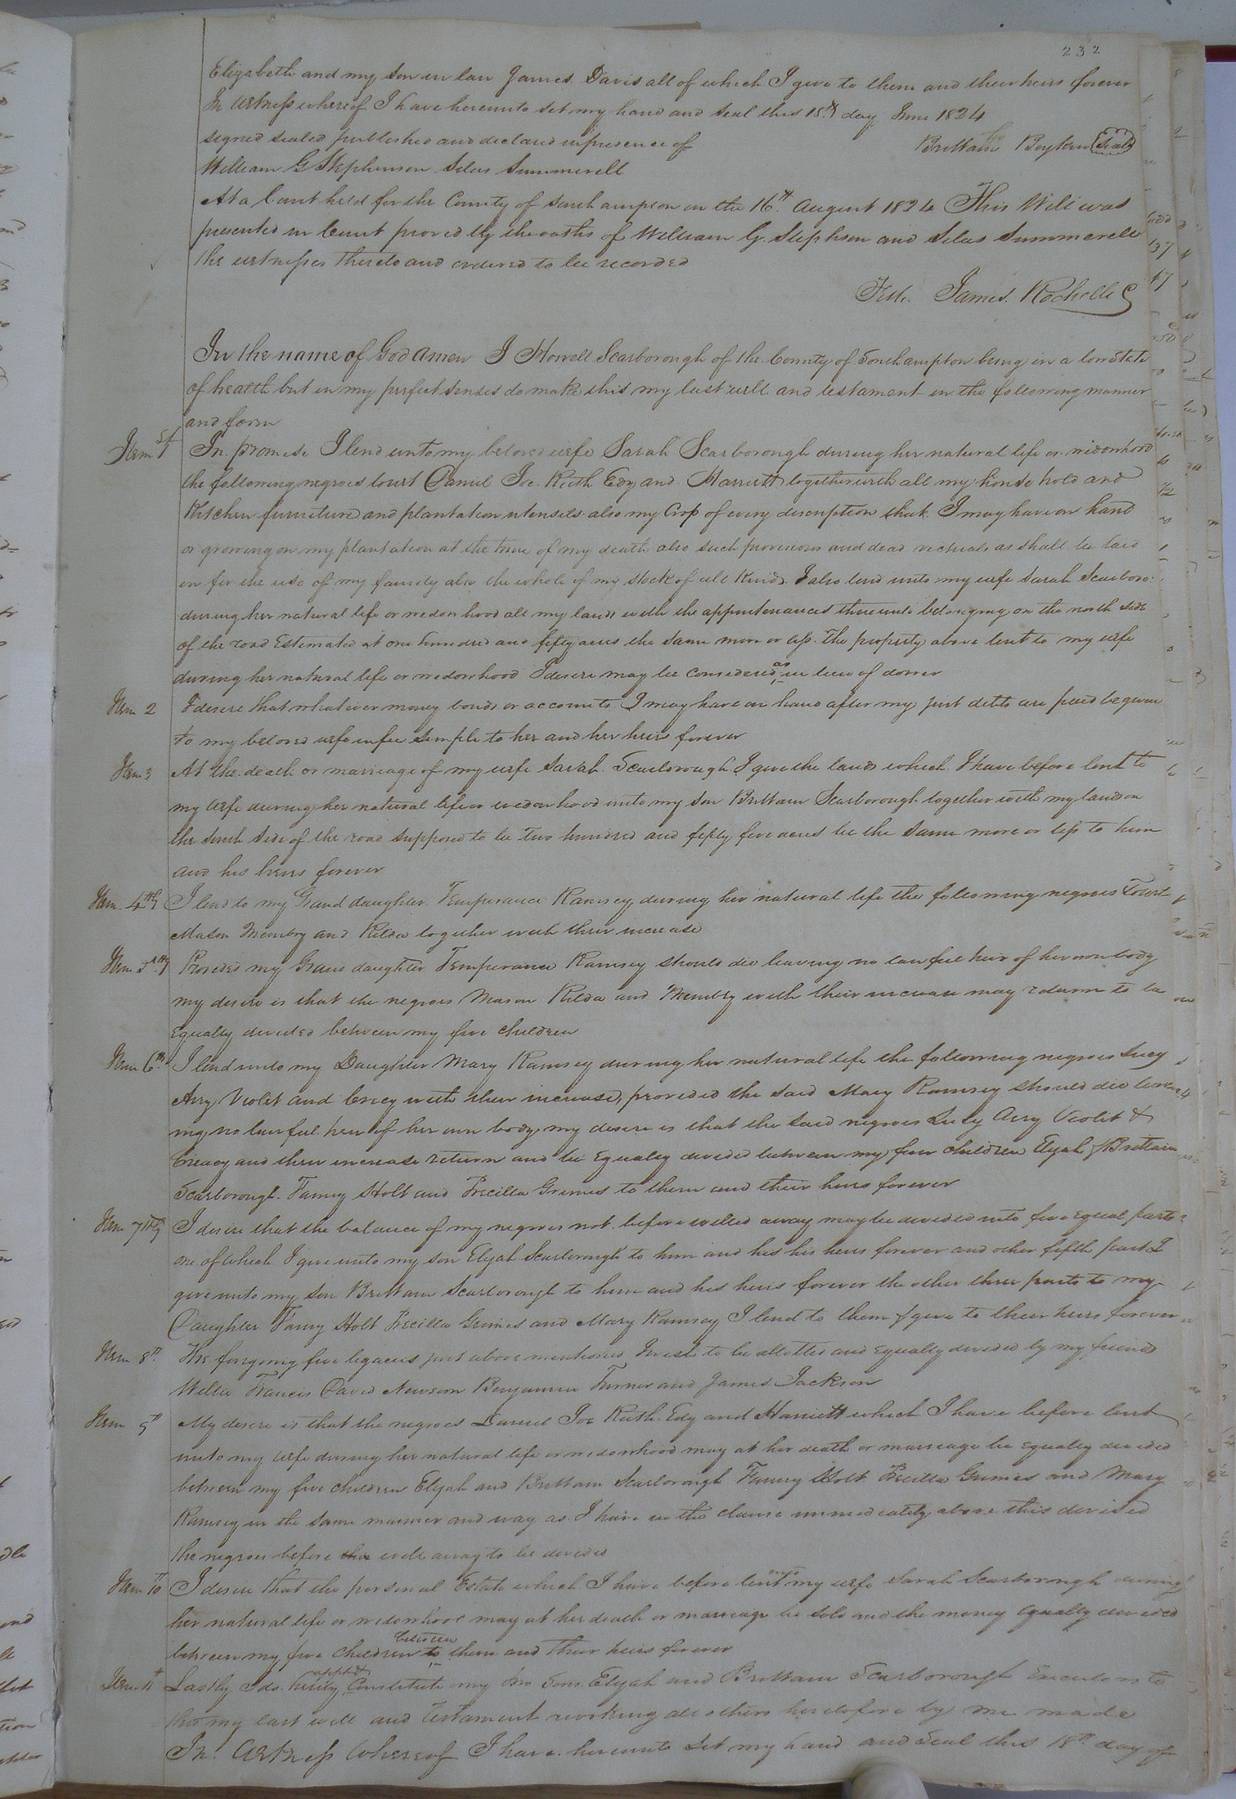 232
Elizabeth and my son in law James Davis all of which I give to them and their heirs forever
In witness whereof I have hereunto set my hand and seal this 15th day June 1824
signed sealed published and declared in presence of Brittain Boykin Seal
William G Stephenson Silas Summerell
At a Court held for the County of Southampton on the 16th August 1824 This Will was
presented in Court proved by the oaths of William G. Stephson and Silas Summerell
the witnesses thereto and ordered to be recorded
Teste. James. Rochelle C
In the name of God Amen I Howell Scarborough of the County of Southampton being in a low State
of health but in my perfect senses do make this my last will and testament in the following manner
and form
Item 1st In promise I lend unto my beloved wife Sarah Scarborough during her natural life or widowhood
the following negroes towit Daniel Joe Ruth Edy and Harriett together with all my house hold and
Kitchen furniture and plantation utensils also my Crop of every description that I may have on hand
or growing on my plantation at the time of my death also such provisions and dead victuals as shall be laid
in for the use of my family also the whole of my stock of all kinds I also lend unto my wife Sarah Scarboro:
during her natural life or widowhood all my lands with the appurtenances thereunto belonging on the north side
of the road Estimated at one hundred and fifty acres the same more or less. The property above lent to my wife
during her natural life or widowhood I desire may be considered as in lieu of dower
Item 2 I desire that whatever money bonds or accounts I may have on hand after my just debts are paid be given
to my beloved wife in fee simple to her and her heirs forever
Item 3 At the death or marriage of my wife Sarah Scarborough I give the lands which I have before lent to
my wife during her natural life or widowhood unto my son Brittain Scarborough together with my land on
the south side of the road supposed to be two hundred and fifty five acres be the same more or less to him
and his heirs forever
Item 4th I lend to my Grand daughter Temperance Ramsey during her natural life the following negroes Towit
Mason Memby and Rilda together with their increase
Item 5th Provided my Grand daughter Temperance Ramsey should die leaving no lawful heir of her own body
my desire is that the negroes Mason Rilda and Memby with their increase may return to be
Equally divided between my five children
Item 6th I lend unto my Daughter Mary Ramsey during her natural life the following negroes Lucy
Airy Violet and Creecy with their increase, provided the said Mary Ramsey should die leav
ing no lawful heir of her own body my desire is that the said negroes Lucy Airy Violet &
Creacy and their increase return and be Equally divided between my four children Elijah & Brittain
Scarborough. Fanny Holt and Pricilla Grimes to them and their heirs forever
Item 7th I desire that the balance of my negroes not before willed away may be divided into five equal parts
one of which I give unto my son Elijah Scarborough to him and his his heirs forever and other fifth part I
give unto my son Brittain Scarborough to him and his heirs forever the other three parts to my
Daughter Fanny Holt Pricilla Grimes and Mary Ramsey I lend to them & give to their heirs forever
Item 8th The foregoing five legacies just above mentioned I wish to be allotted and Equally divided by my friends
Willie Francis David Newsom Benjamin Turner and James Jackson
Item 9th My desire is that the negroes Daniel Joe Ruth Edy and Harriett which I have before lent
unto my wife during her natural life or widowhood may at her death or marriage be Equally divided
between my five children Elijah and Brittain Scarborough Fanny Holt Pricilla Grimes and Mary
Ramsey in the same manner and way as I have in the clause immediately above this devised
the negroes before willed away to be divided
Item 10 I desire that the personal Estate which I have before lent unto my wife Sarah Scarborough during
her natural life or widowhood may at her death or marriage be sold and the money Equally divided
between my five children between to them and their heirs forever
Item 11 Lastly I do hereby appoint Constitute my two sons Elijah and Brittain Scarborough Executors to
this my last will and Testament revoking all others heretofore by me made
In Witness Whereof I have hereunto set my hand and Seal this 18th day of